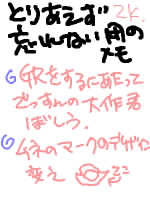 とりあえず
忘れない用の
メモ
GRをするにあたって
でっすんの大作君
ぼしう。
ムネのマークのデザイン
変え